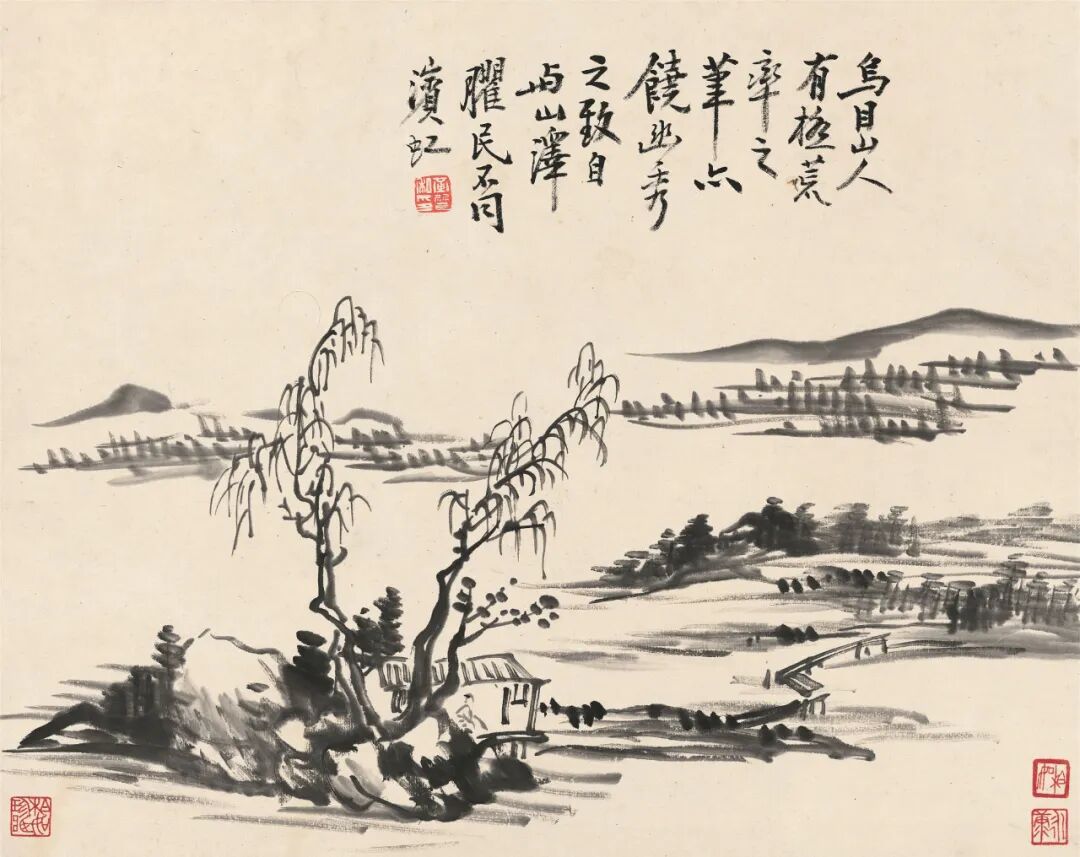 烏目山人
有極荒
率之
筆亦
饒幽秀
之致自
與山澤
臞民不同
濱虹